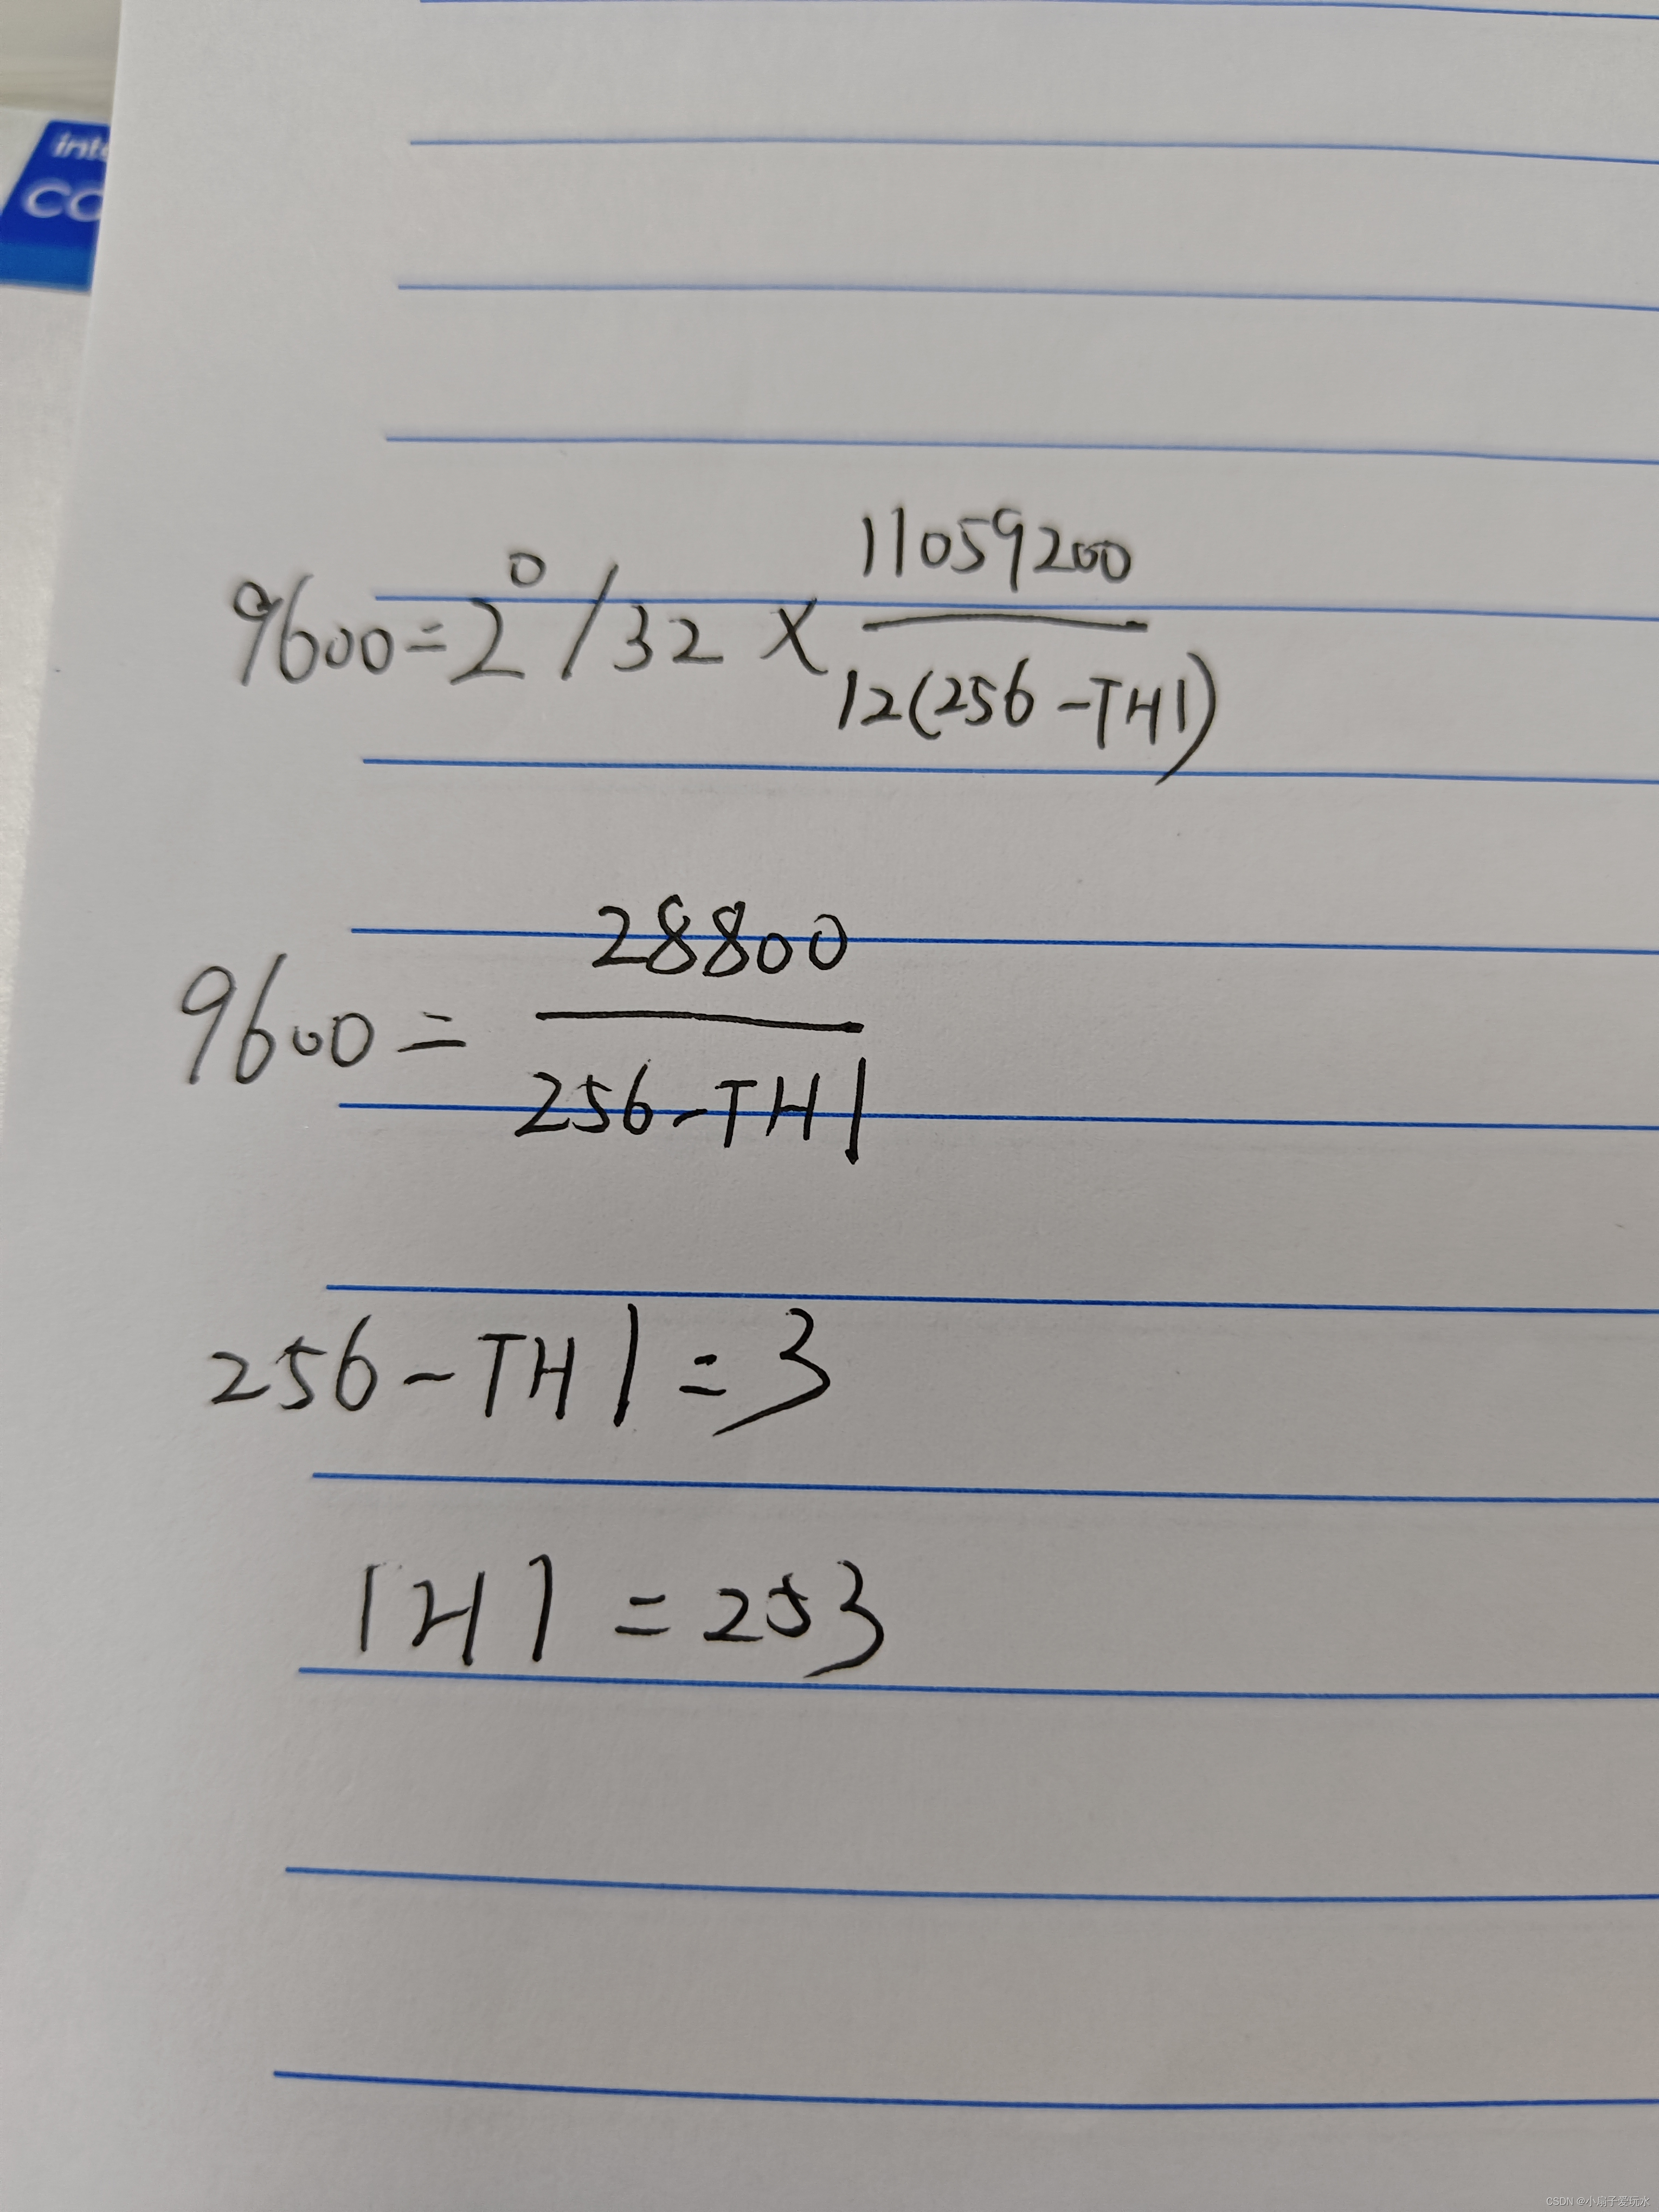 inte
CO
9600=2⁰/32 × 11059200/12(256-TH1)
9600 = 28800/256-TH1
256-TH1=3
TH1=253
CSDN @小扇子爱玩水